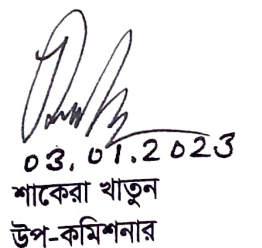 03.01.2023
শাকেরা খাতুন
উপ-কমিশনার